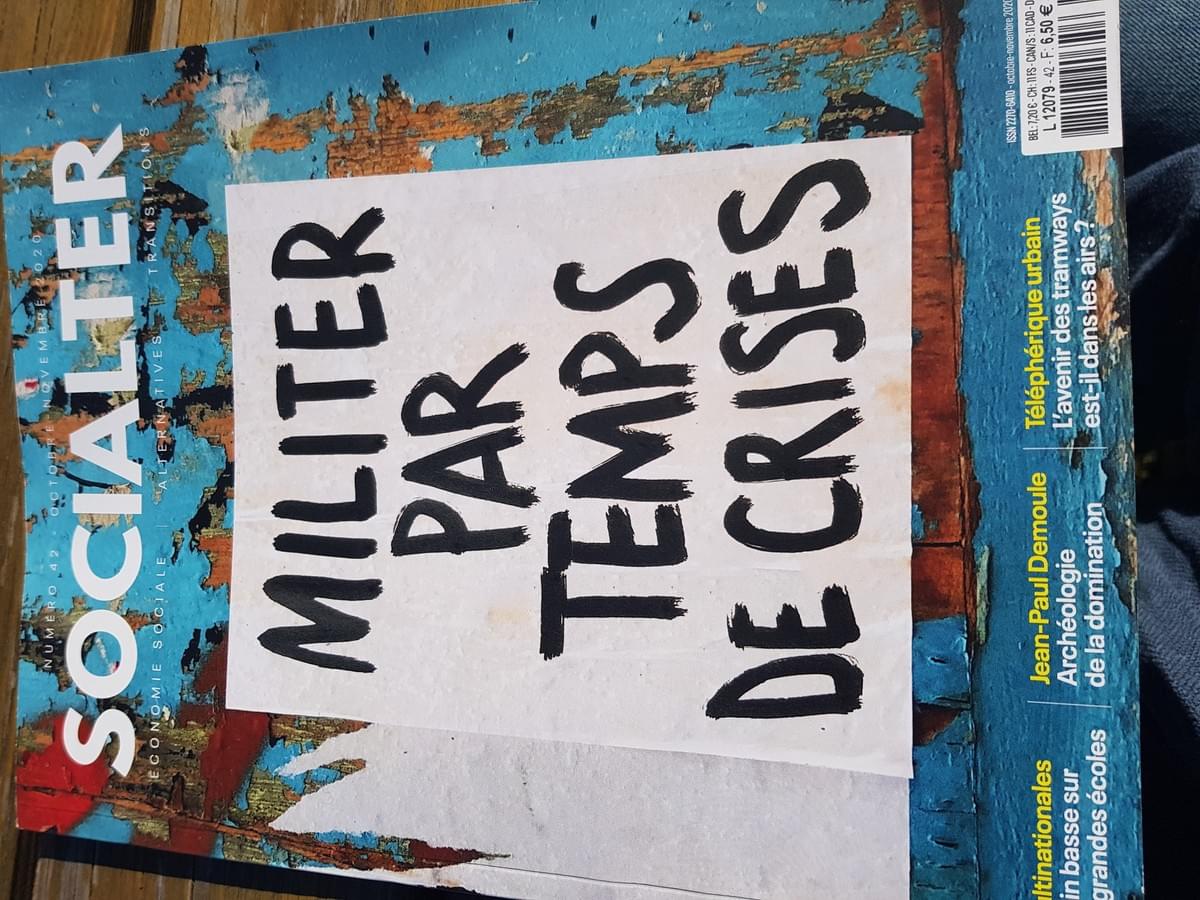 NUMÉRO 42 • OCTOBRE-NOVEMBRE 2020
SOCIALTER
ÉCONOMIE SOCIALE | ALTERNATIVES TRANSITIONS
MILITER
PAR
TEMPS
DE CRISES
ultinationales
in basse sur
grandes écoles
Jean-Paul Demoule
Archéologie
de la domination
Téléphérique urbain
L'avenir des tramways
est-il dans les airs ?
ISSN 2270-6410 - octobre-novembre 2020
BEL : 7,20 € - CH : 11 FS - CAN/S : 11 CAD - D
L 12079 - 42 - F: 6,50 €